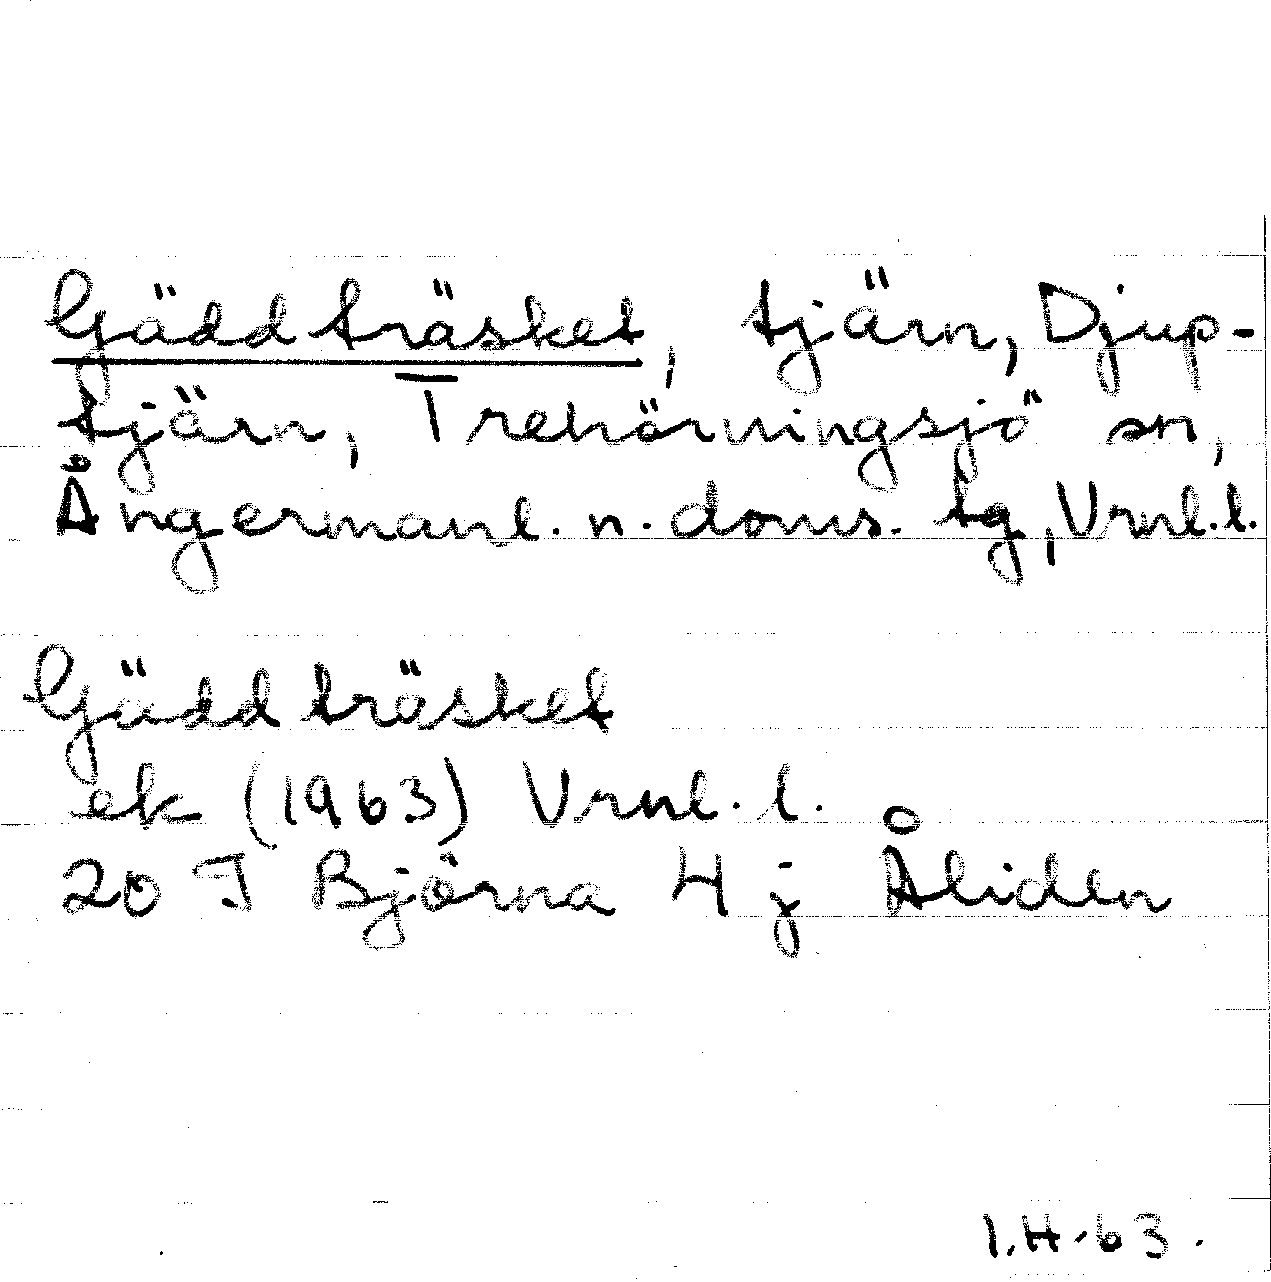 Gäddträsket, tjärn, Djup-
tjärn, Trehörningsjö sn,
Ångermanl. n. doms. tg, Vrnl. l.
Gäddträsket
ek (1963) Vrnl. l.
20 J Björna 4 j Åliden
I.H.-63.